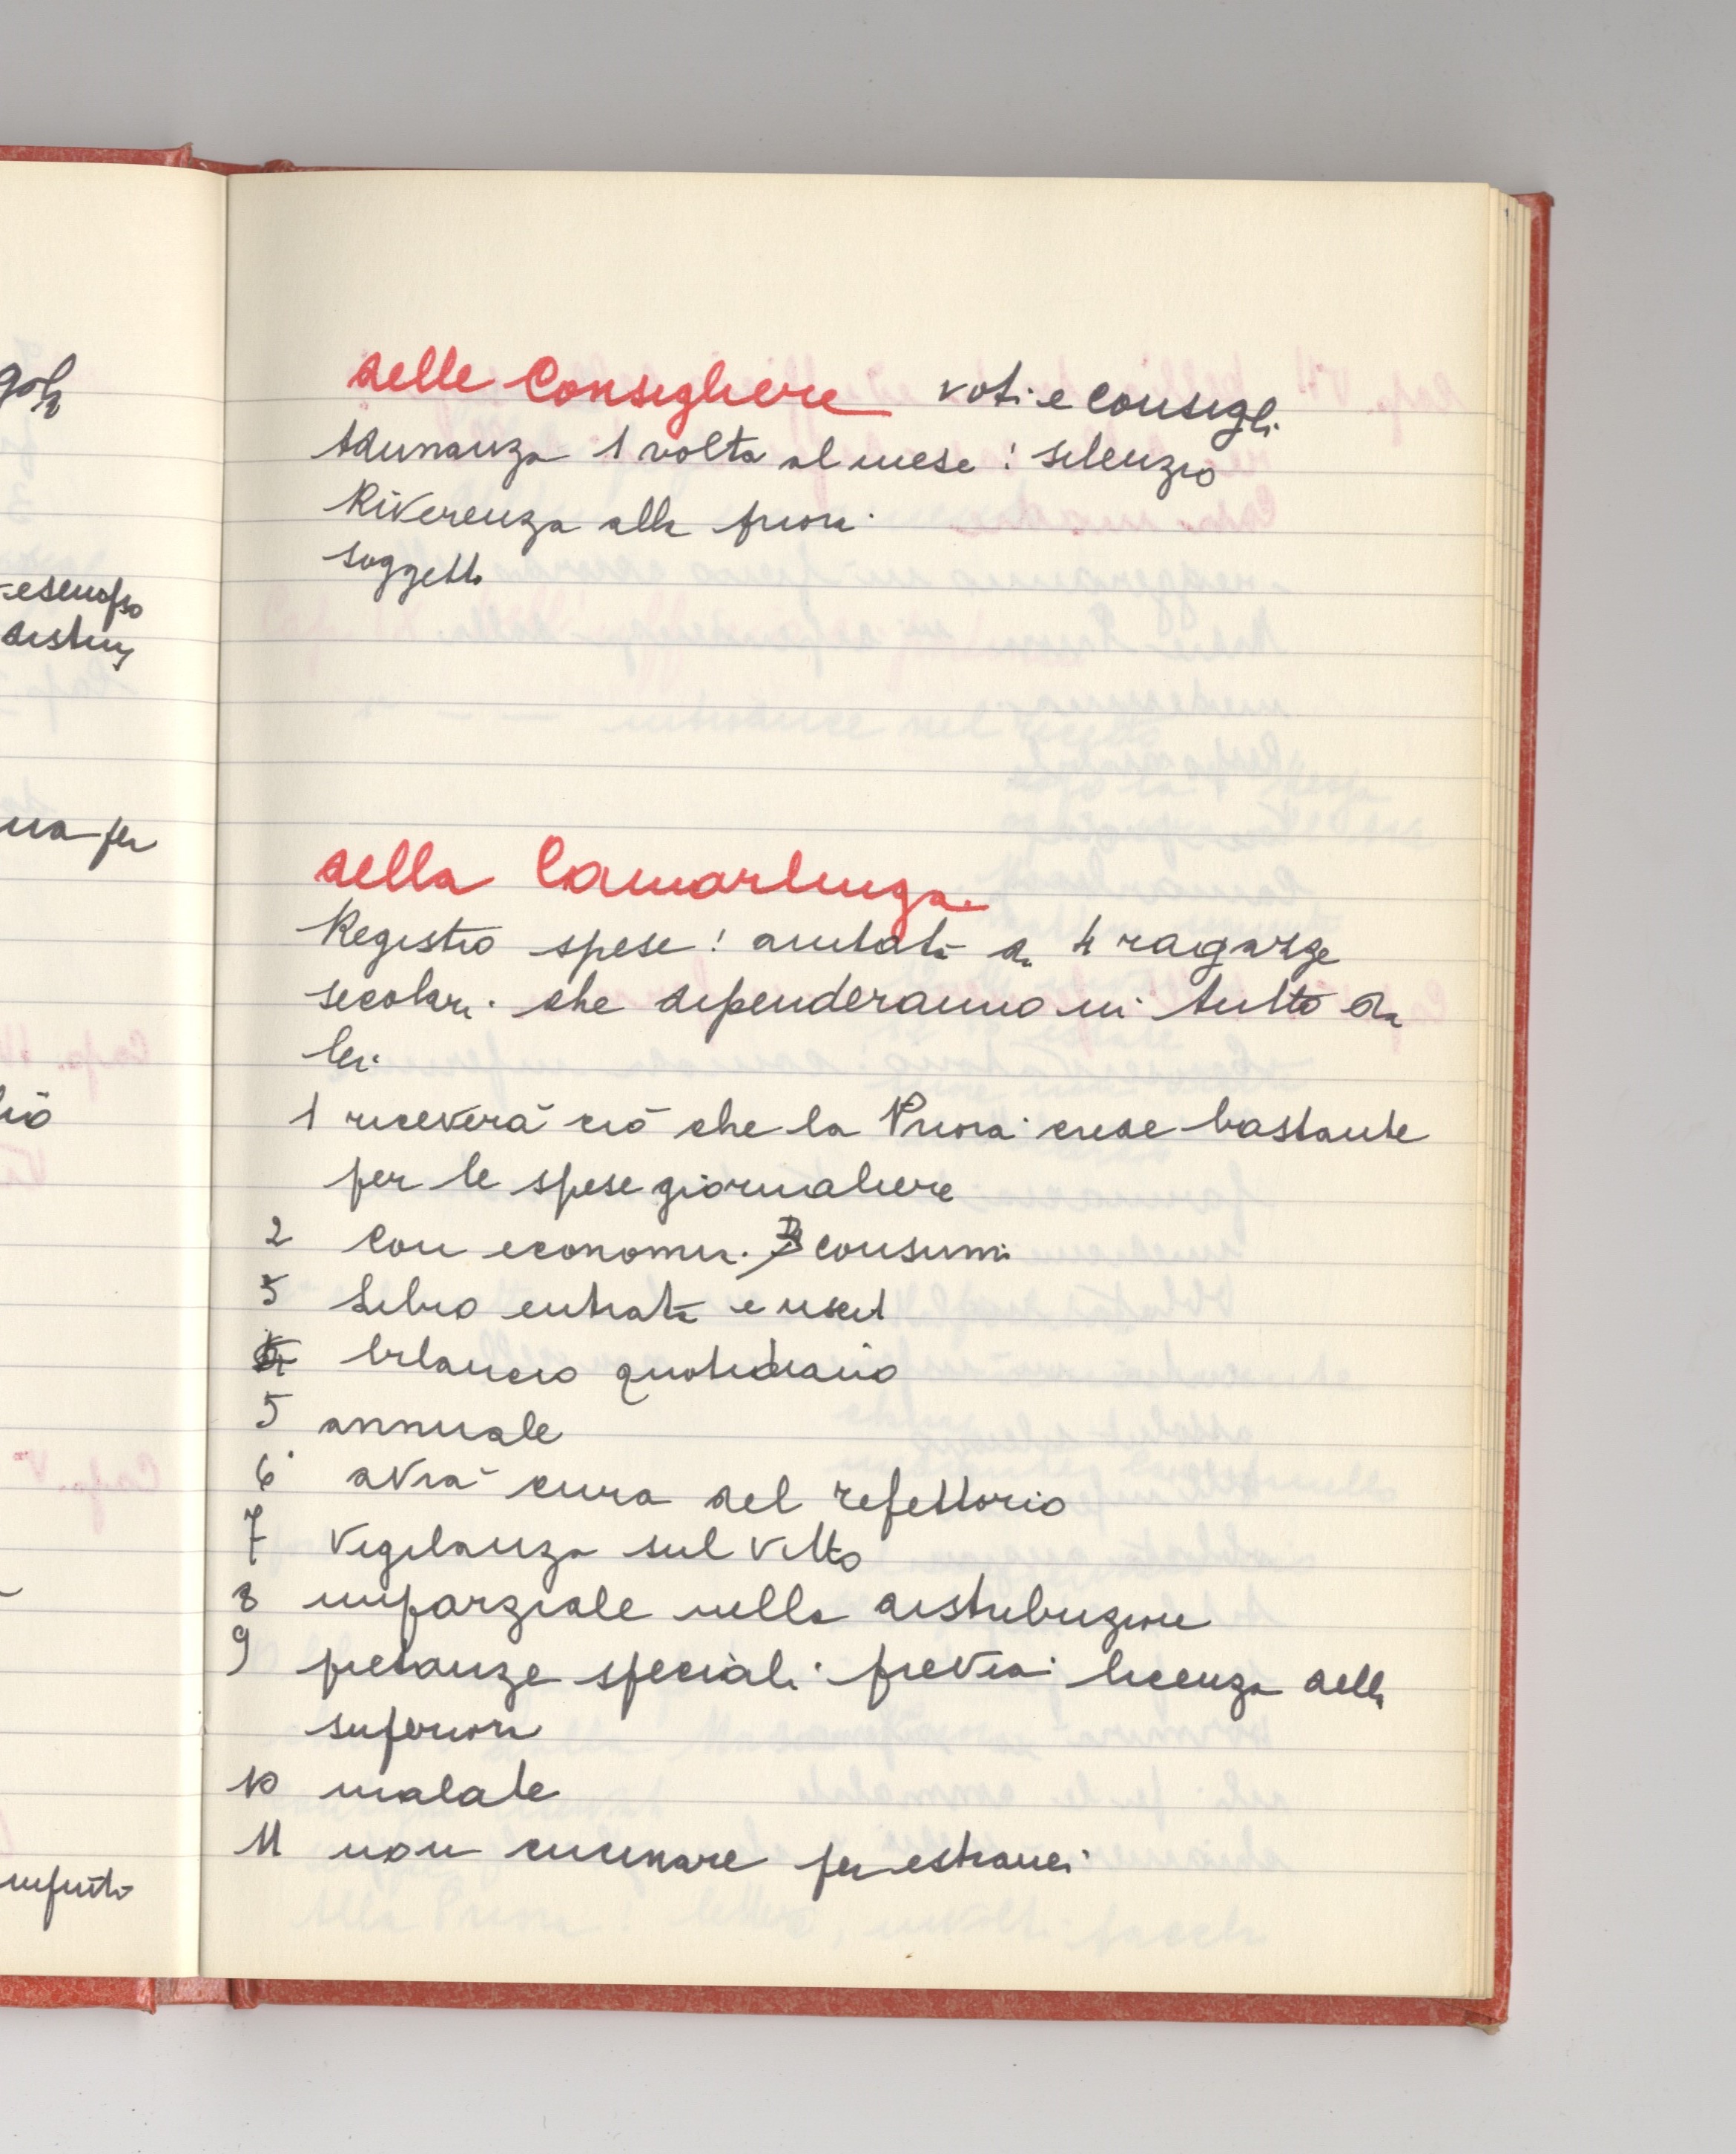 delle Consigliere voti e consigli
Adunanza 1 volta al mese : silenzio
Riverenza alla priora
soggetti
della Camarlinga
Registro spese ! aiutata da 4 ragazze
secolari. che dipenderanno in tutto da
lei.
1 riceverà ciò che la Priora crede bastante
per le spese giornaliere
2 con economia. consumi
3 Libro entrata e uscit
4 bilancio quotidiano
5 annuale
6 avrà cura del refettorio
7 Vigilanza sul vitto
8 imparziale nella distribuzione
9 pietanze speciali previa licenza della
superiora
10 malate
11 non cucinare per estranei